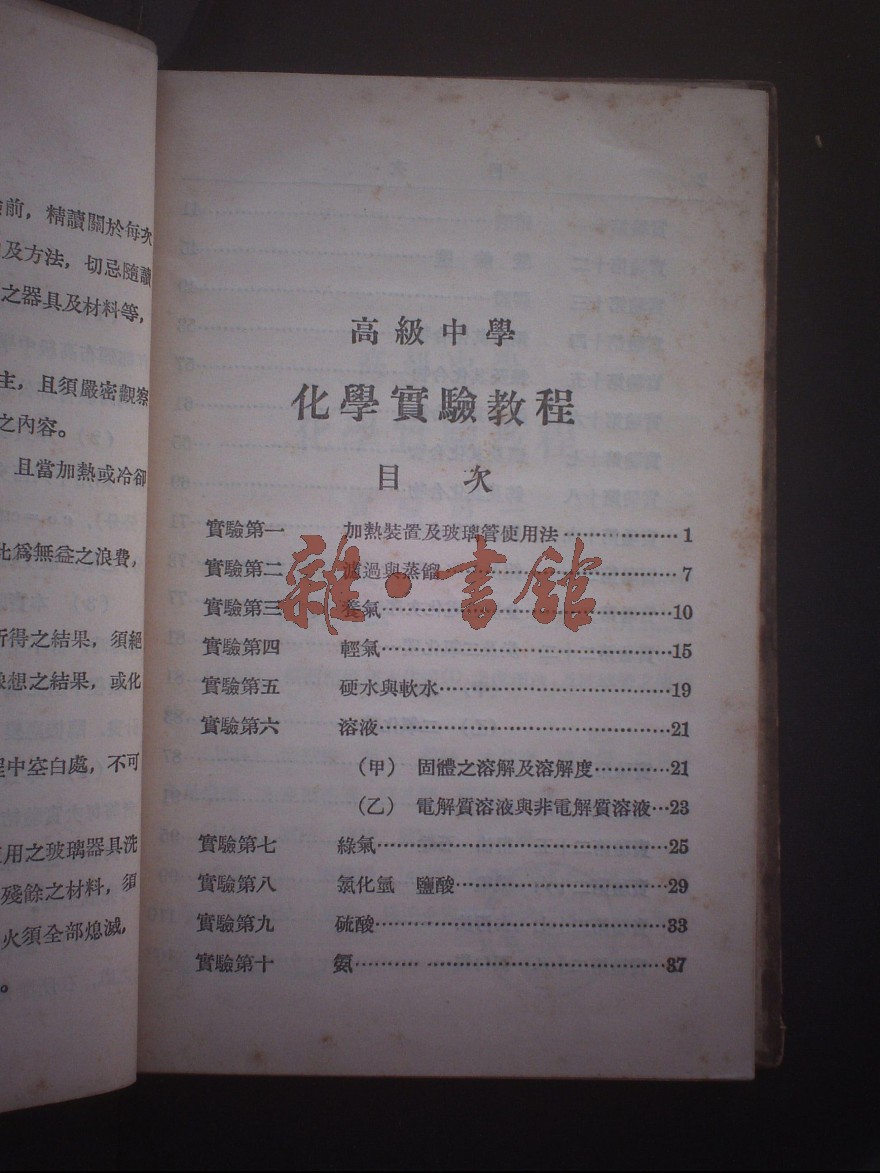 前，精讀關於每次
及方法，切忌隨讀
之器具及材料等，
主，且須嚴密觀察
之內容。
且當加熱或冷卻
此爲無益之浪費，
所得之結果，須絕
想之結果，或化
程中空白處，不可
用之玻璃器具洗
殘餘之材料，須
火須全部熄滅，
。
高級中學
化學實驗教程
目次
實驗第一 加熱裝置及玻璃管使用法………………1
實驗第二 濾過與蒸餾………………7
實驗第三 養氣………………10
實驗第四 輕氣………………15
實驗第五 硬水與軟水………………19
實驗第六 溶液………………21
（甲） 固體之溶解及溶解度…………21
（乙） 電解質溶液與非電解質溶液…23
實驗第七 綠氣………………25
實驗第八 氯化氫 鹽酸………………29
實驗第九 硫酸………………33
實驗第十 氨………………37
雜·書館